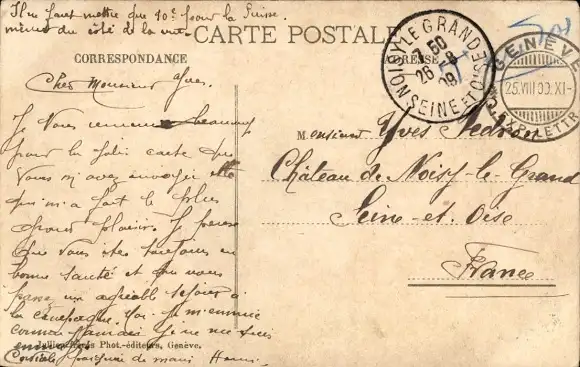 Il ne faut mettre que 10c pour la Suisse.
même du côté de la vue.
CARTE POSTALE
CORRESPONDANCE
ADRESSE
NOISY LE GRAND
7 50
26 -8
09
SEINE ET OISE
GENÈVE
25.VIII.09.XI-
EXP. LETTR.
Cher Monsieur Yves.
Je vous remercie beaucoup
pour la jolie carte que
vous m'avez envoyée elle
qui m'a fait le plus
grand plaisir. Je pense
que vous êtes toujours en
bonne santé et que vous
un agréable séjour à
la campagne. je m'ennuie
comme jamais je ne me suis
Cordiale poignée de main Henri.
Monsieur Yves
Château de Noisy-le-Grand
Seine-et-Oise
France
Jullien Frères Phot.-éditeurs, Genève.